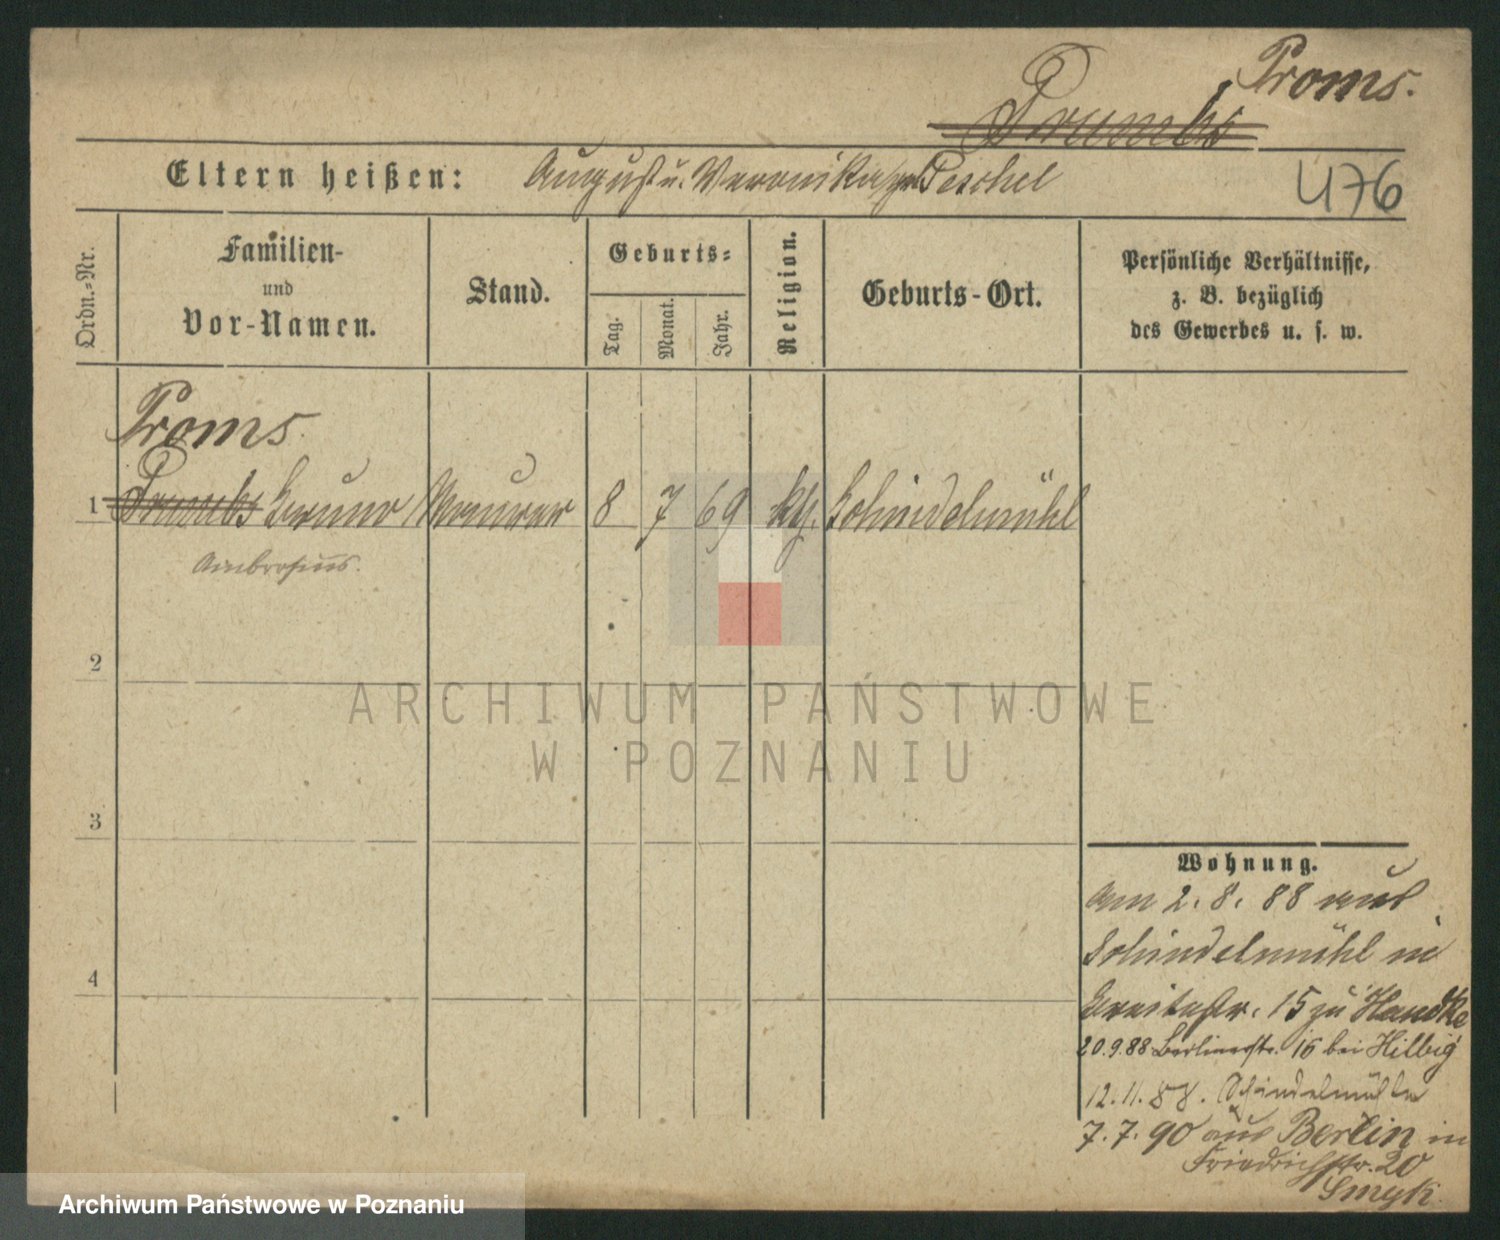 Proms.
Drumbs
Eltern heißen: August u. Veronika geb Peschel
476
Ordn.-Nr.
Familien-
und
Vor-Namen.
Stand.
Geburts-
Tag.
Monat.
Jahr.
Religion.
Geburts-Ort.
Persönliche Verhältnisse,
z. B. bezüglich
des Gewerbes u. s. w.
Proms
1 Drumbs Bruno Maurer 8 7 69 kth. Schindelmühl
Ambrosius.
2
3
4
ARCHIWUM PAŃSTWOWE
W POZNANIU
Wohnung.
Am 2. 8. 88 aus
Schindelmühl in
Breitestr. 15 zu Handke
20.9.88 Berlinerstr. 16 bei Hilbig
12.11.88. Schindelmühle
7.7.90 aus Berlin in
Friedrichstr. 20
Smyk.
Archiwum Państwowe w Poznaniu